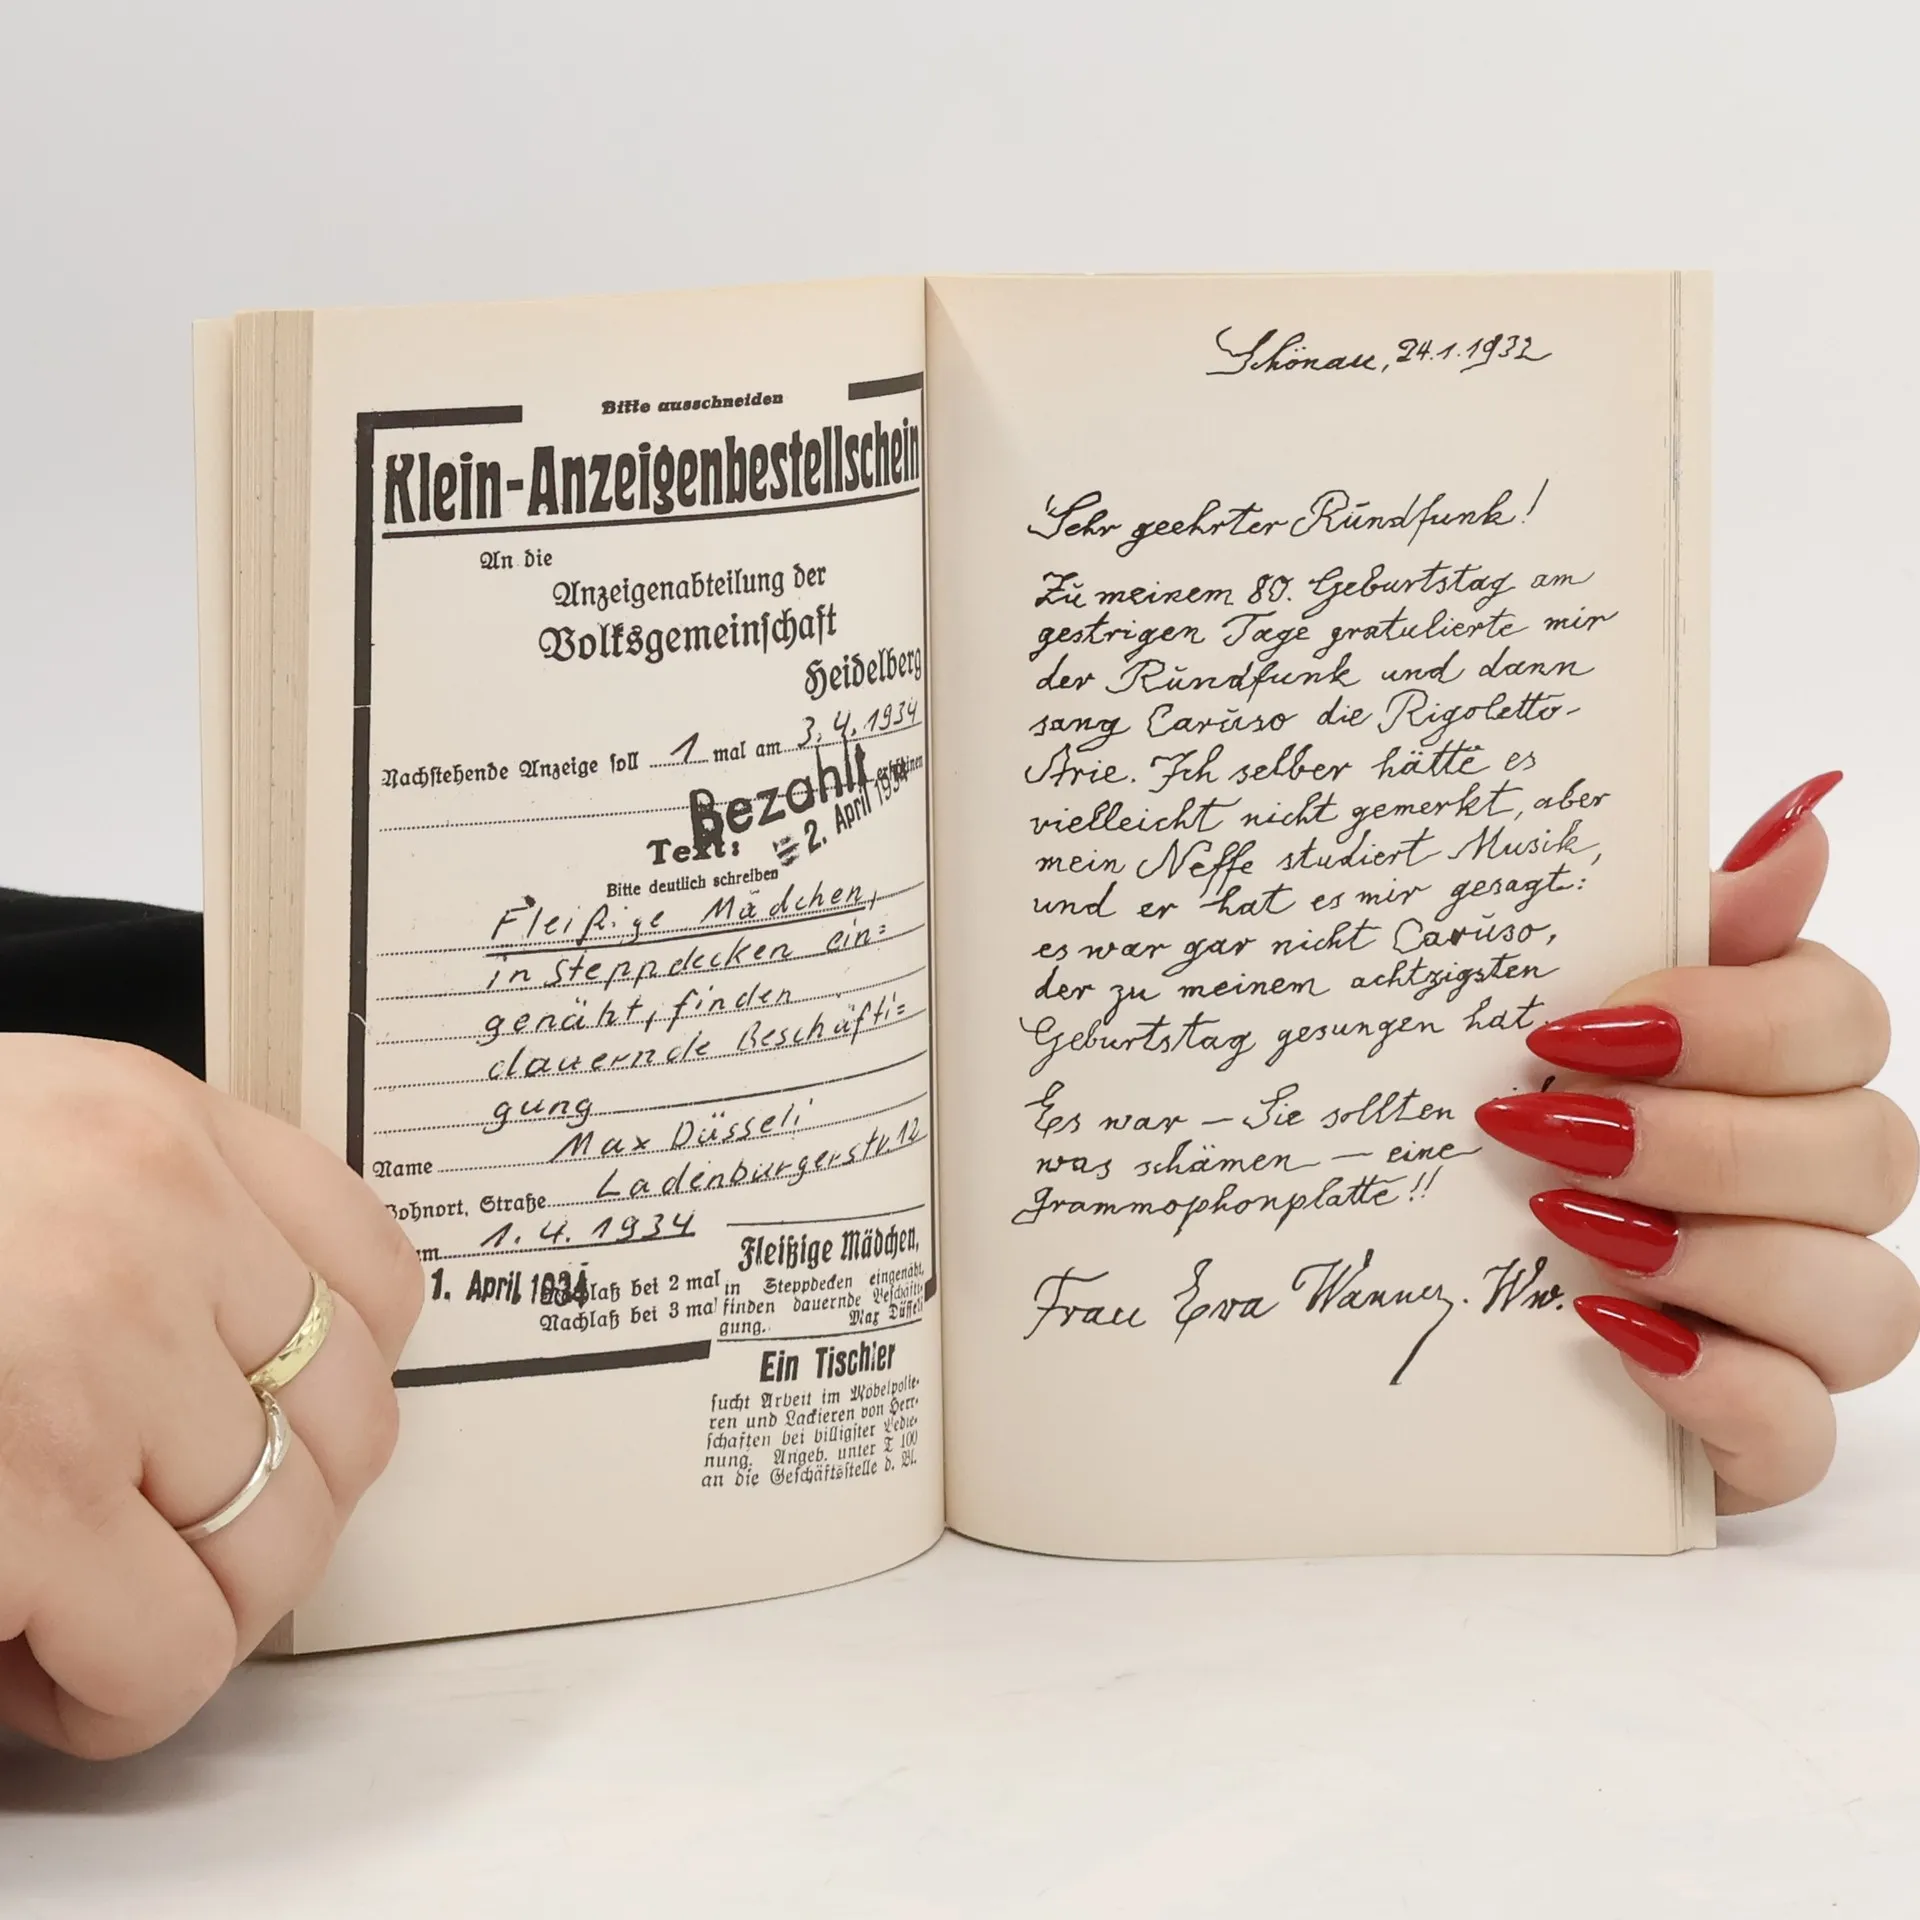 Bitte ausschneiden
Klein-Anzeigenbestellschein
An die
Anzeigenabteilung der
Volksgemeinschaft
Heidelberg
Nachstehende Anzeige soll 1 mal am 3.4.1934
erscheinen
Bezahlt
2. April 1934
Text:
Bitte deutlich schreiben
Fleißige Mädchen,
in Steppdecken ein=
genäht, finden
dauernde Beschäfti=
gung
Name Max Düsseli
Wohnort, Straße Ladenburgerstr. 12
1.4.1934
1. April 1934
Nachlaß bei 2 mal
Nachlaß bei 3 mal
Fleißige Mädchen,
in Steppdecken eingenäht,
finden dauernde Beschäfti-
gung. Max Düsseli
Ein Tischler
sucht Arbeit im Möbelpolie-
ren und Lackieren von Herr-
schaften bei billigster Bedie-
nung. Angeb. unter T 100
an die Geschäftsstelle d. Bl.
Schönau, 24.1.1932
Sehr geehrter Rundfunk!
Zu meinem 80. Geburtstag am
gestrigen Tage gratulierte mir
der Rundfunk und dann
sang Caruso die Rigoletto-
Arie. Ich selber hätte es
vielleicht nicht gemerkt, aber
mein Neffe studiert Musik,
und er hat es mir gesagt:
es war gar nicht Caruso,
der zu meinem achtzigsten
Geburtstag gesungen hat.
Es war – Sie sollten
was schämen – eine
Grammophonplatte!!
Frau Ewa Wanner. Ww.